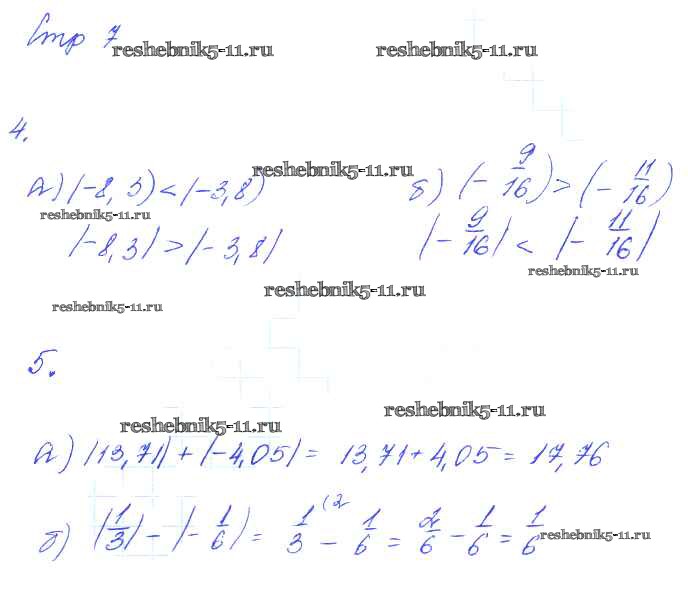 Стр 7
reshebnik5-11.ru reshebnik5-11.ru
4.
reshebnik5-11.ru
а) (-8,3) < (-3,8) б) (- 9/16) > (- 11/16)
reshebnik5-11.ru
|-8,3| > |-3,8| |- 9/16| < |- 11/16|
reshebnik5-11.ru
reshebnik5-11.ru
reshebnik5-11.ru
5.
reshebnik5-11.ru
reshebnik5-11.ru
а) |13,71| + |-4,05| = 13,71 + 4,05 = 17,76
б) |1/3| - |- 1/6| = 1/3 (2 - 1/6 = 2/6 - 1/6 = 1/6
reshebnik5-11.ru